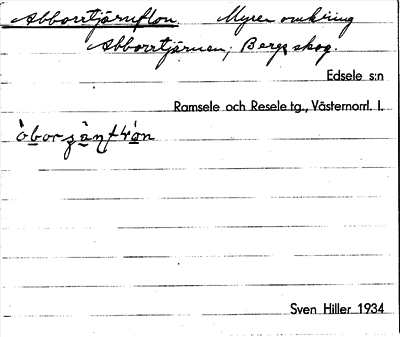 Abborrtjärnflon Myren omkring
Abborrtjärnen, Bergs skog.
Edsele s:n
Ramsele och Resele tg., Västernorrl. l.
Sven Hiller 1934